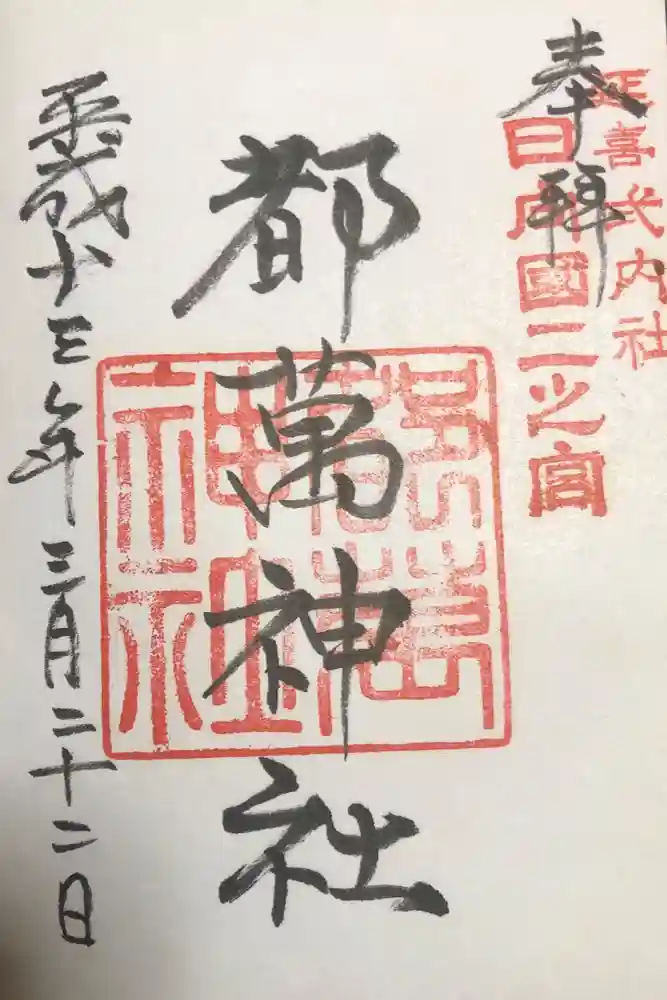 奉拝
延喜式内社
日向國二之宮
都萬神社
平成十三年三月二十二日